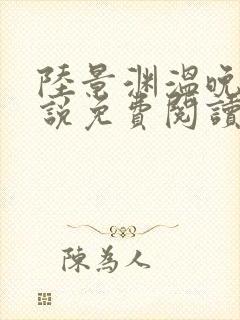 陸景渊溫晚
說免費閱讀
陳為人